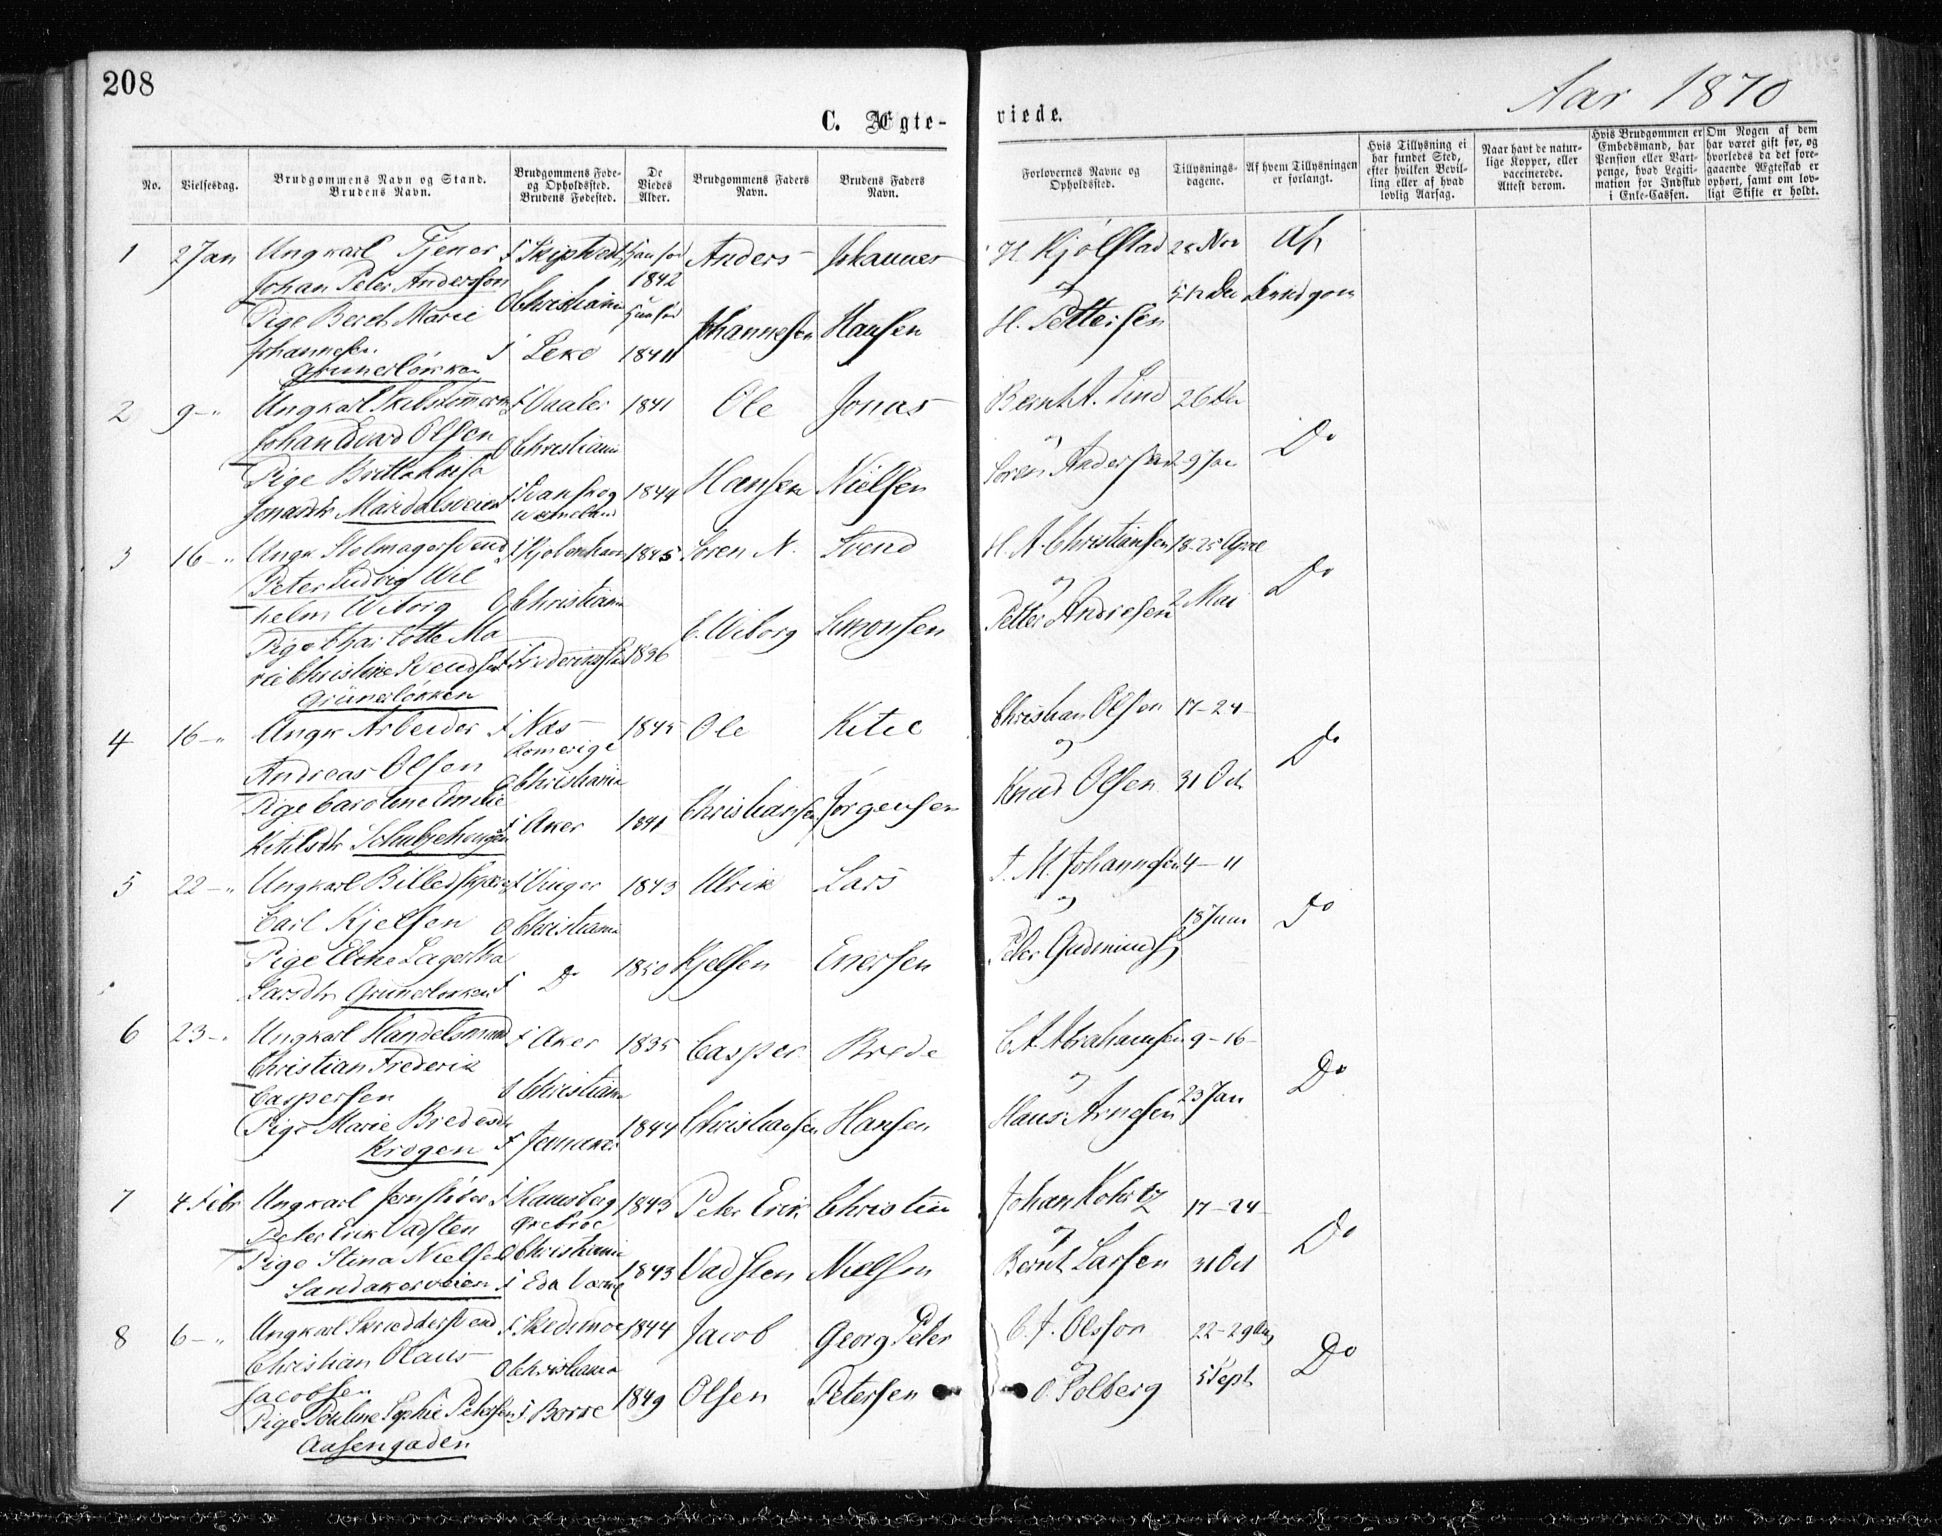 208
C. Ægte-
viede.
Aar 1870
No.
Vielsesdag.
Brudgommens Navn og Stand.
Brudens Navn.
Brudgommens Føde-
og Opholdssted.
Brudens Fødested.
De
Viedes
Alder.
Brudgommens Faders
Navn.
Brudens Faders
Navn.
Forlovernes Navne og
Opholdssted.
Tillysnings-
dagene.
Af hvem Tillysningen
er forlangt.
Hvis Tillysning ei
har fundet Sted,
efter hvilken Bevil-
ling eller af hvad
lovlig Aarsag.
Naar havt de natur-
lige Kopper, eller
vaccinerede.
Attest derom.
Hvis Brudgommen er
Embedsmand, har
Pension eller Vart-
penge, hvad Legiti-
mation for Indskud
i Enke-Cassen.
Om Nogen af dem
har været gift før, og
hvorledes da det fore-
gaaende Ægteskab er
ophørt, samt om lov-
ligt Skifte er holdt.
1 2 Jan Ungkarl Tjener f Skiptvedt Anders Johannes H Kjølstad 28 Nov Af
Johan Peter Andersson 1842
Pige Berth Marie O Christiania 5-12 De Brudgom
Johannesen f 1841 Johannesen Hansen H. Pettersen
Grünerløkken
2 9 – " Ungkarl f Vaaler 1841 Ole Jonas Bernt A. Lind 26 De
Johan Edvard Olsen O Christiania og Do
Pige Britta Kaisa Hansen Nielsen Søren Andersen 2-9 Jan
Jonasdtr Maridalsveien f 1844
3 16 – " Ungk Stolmagersvend f Kjøbenhavn 1845 Søren N. Svend H. A. Christiansen 18-25 April
Peter Ludvig Wil Do
helm Wiborg O Christiania og
Pige Charlotte Ma C. Wiborg Simonsen Petter Andresen 2 Mai
rie Christine Svendsen f Frederiksstad 1836
Grünerløkken
4 16 – " Ungk Arbeider f Næs 1845 Ole Ketil Christian Olsen 17-24
Romerige og
Andreas Olsen O Christiania Do
Pige Caroline Emilie Christiansen Jørgensen Knud Olsen 31 Oct
Ketilsdtr f Aker 1841
5 22 – " Ungkarl f Vinger 1843 Ulrik Lars J. M. Johannesen 4-11
Carl Kjelsen O Christiania og 18 Do
Pige Lagertha f Do 1850 Kjelsen Enersen Peter
Larsdtr Grünerløkken
6 23 – " Ungkarl Handelsmand f Aker 1835 Casper Brede C. A. Abrahamsen 9-16
Christian Frederik og Do
Caspersen O Christiania 23 Jan
Pige Marie Bredesdtr 1844 Christiansen Hansen Hans Arnesen
Krogen f
7 4 Febr Ungkarl f 1843 Peter Erik Christian Johan 17-24
Peter Erik Vadsten Ørebroe og Do
Pige Stina Nielsen O Christiania 1843 Vadsten Nielsen Bernt Larsen 31 Oct
Sandakerveien f Eda
8 6 – " Ungkarl Skreddersvend f Skedsmoe 1844 Jacob Georg Peter C. J. Olsson 22-29 Aug
Christian Olaus O Christiania og Do
Jacobsen Olsen Petersen O. Solberg 5 Sept
Pige Pouline Sophie Petersen f Borre 1849
Aasengaden